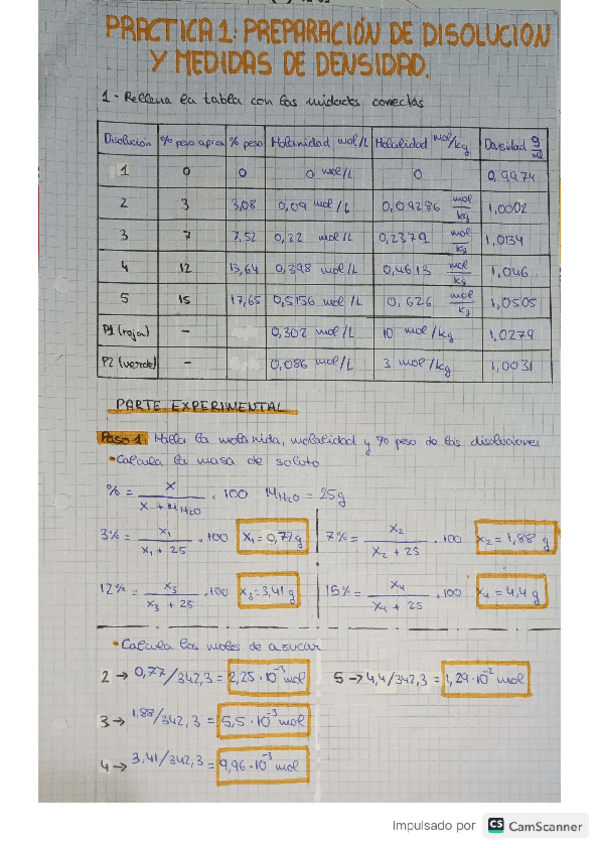 PRACTICA 1: PREPARACIÓN DE DISOLUCION
Y MEDIDAS DE DENSIDAD.
1- Rellena la tabla con las unidades correctas
Disolución % peso aprox % peso Molaridad mol/L Molalidad mol/kg Densidad g/ml
1 0 0 0 mol/L 0 0,9974
2 3 3,08 0,09 mol/L 0,09286 mol/kg 1,0002
3 7 7,52 0,22 mol/L 0,2379 mol/kg 1,0134
4 12 13,64 0,398 mol/L 0,4613 mol/kg 1,046
5 15 17,65 0,5156 mol/L 0,626 mol/kg 1,0505
P1 (roja) - 0,302 mol/L 10 mol/kg 1,0279
P2 (verde) - 0,086 mol/L 3 mol/kg 1,0031
PARTE EXPERIMENTAL
Paso 1: Halla la molaridad, molalidad y % peso de las disoluciones
•Calcula la masa de soluto
% = x / x + MH2O · 100 MH2O = 25g
3% = x1 / x1 + 25 · 100 x1 = 0,77g 7% = x2 / x2 + 25 · 100 x2 = 1,88 g
12% = x3 / x3 + 25 · 100 x3 = 3,41 g 15% = x4 / x4 + 25 · 100 x4 = 4,4 g
•Calcula los moles de azucar
2 → 0,77/342,3 = 2,25 · 10⁻³ mol 5 → 4,4/342,3 = 1,29 · 10⁻² mol
3 → 1,88/342,3 = 5,5 · 10⁻³ mol
4 → 3,41/342,3 = 9,96 · 10⁻³ mol
Impulsado por CS CamScanner